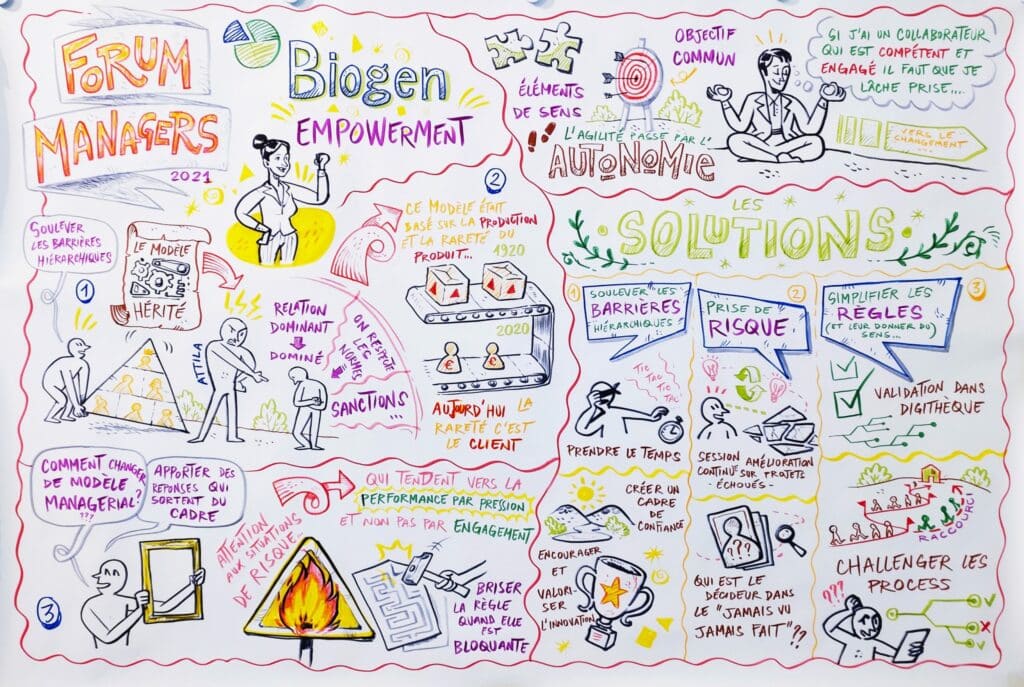 FORUM
MANAGERS
2021
Biogen
EMPOWERMENT
SOULEVER
LES BARRIÈRES
HIÉRARCHIQUES
1
LE MODÈLE
HÉRITÉ
ATTILA
RELATION
DOMINANT
DOMINÉ
ON RESPECTE
LES
NORMES
SANCTIONS
...
2
CE MODÈLE ÉTAIT
BASÉ SUR LA PRODUCTION
ET LA RARETÉ DU
PRODUIT...
1920
2020
€
€
AUJOURD'HUI LA
RARETÉ C'EST
LE CLIENT
3
COMMENT CHANGER
DE MODÈLE
MANAGERIAL?
???
APPORTER DES
REPONSES QUI
SORTENT DU
CADRE
ATTENTION
AUX SITUATIONS
DE RISQUE
QUI TENDENT VERS LA
PERFORMANCE PAR PRESSION
ET NON PAS PAR ENGAGEMENT
BRISER
LA RÈGLE
QUAND ELLE
EST
BLOQUANTE
ÉLÉMENTS
DE SENS
OBJECTIF
COMMUN
L'AGILITÉ PASSE PAR L'
AUTONOMIE
SI J'AI UN COLLABORATEUR
QUI EST COMPÉTENT ET
ENGAGÉ IL FAUT QUE JE
LÂCHE PRISE...
VERS LE
CHANGEMENT
...
LES
SOLUTIONS
1
SOULEVER LES
BARRIÈRES
HIÉRARCHIQUES
TIC
TAC
TIC
TAC
PRENDRE LE TEMPS
CRÉER UN
CADRE
DE
CONFIANCE
ENCOURAGER
ET
VALORI-
SER
L'INNOVATION
2
PRISE DE
RISQUE
SESSION AMÉLIORATION
CONTINUE SUR PROJETS
ÉCHOUÉS-
??
QUI EST LE
DÉCIDEUR DANS
LE "JAMAIS VU
JAMAIS FAIT"??
3
SIMPLIFIER LES
RÈGLES
(ET LEUR DONNER DU)
SENS...
VALIDATION DANS
DIGITHÈQUE
RACCOURCI
CHALLENGER LES
PROCESS
???